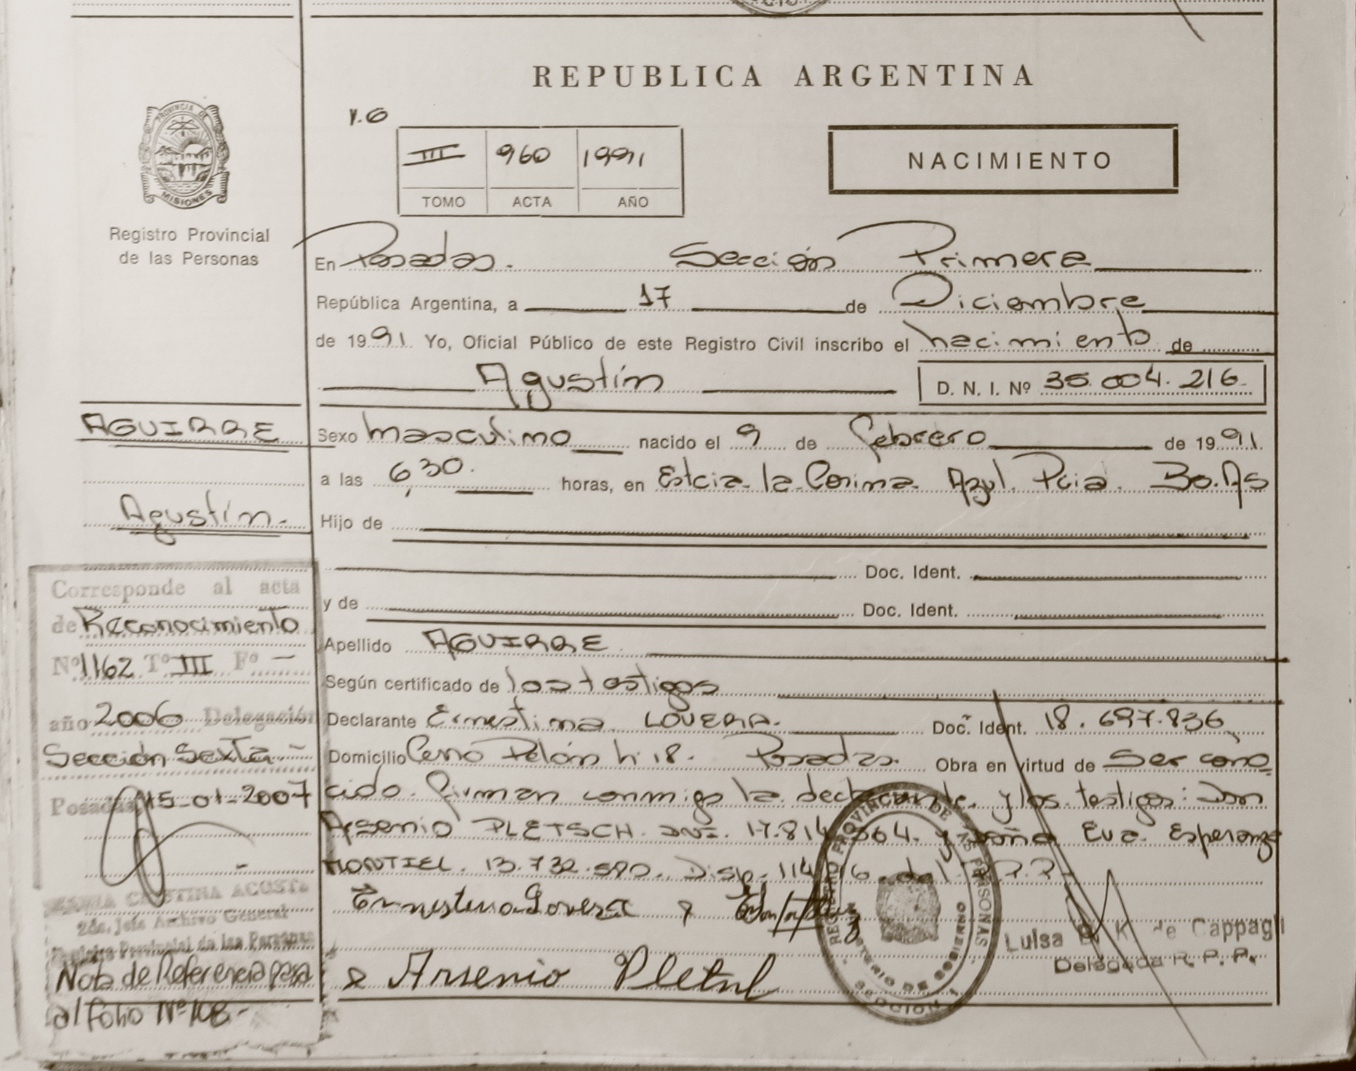 REPUBLICA ARGENTINA
PROVINCIA DE
MISIONES
Registro Provincial
de las Personas
V.6
III 960 1991
TOMO ACTA AÑO
NACIMIENTO
En Posadas. Sección Primera
República Argentina, a 17 de Diciembre
de 1991. Yo, Oficial Público de este Registro Civil inscribo el nacimiento de
Agustín D. N. I. Nº 35.004.216.
AGUIRRE
Agustín.
Sexo masculino nacido el 9 de febrero de 1991.
a las 6,30. horas, en Estcia. la Corina. Azul. Pcia. Bs.As
Hijo de
Doc. Ident.
y de Doc. Ident.
Apellido AGUIRRE
Según certificado de los testigos
Declarante Ernestina LOVERA. Doc. Ident. 18.697.836
Domicilio Cerró Pelón h: 18. Posadas. Obra en virtud de Ser cono
cido. Firman conmigo la declarante y los testigos: Don
Arsenio PLETSCH. DNI. 17.814. 064. y doña Eva. Esperanza
MONTIEL. 13.732.590. Disp. 114
Ernestina Lovera
Arsenio
Luisa K de Cappagli
Delegada R. P. P.
REGISTRO PROVINCIAL DE LAS PERSONAS
MINISTERIO DE GOBIERNO
SECCION 1
Corresponde al acta
de Reconocimiento
Nº 1162 Tº III Fº —
año 2006 Delegación
Sección Sexta -
Posadas 15-01-2007
MARIA CRISTINA ACOSTA
2da. Jefa Archivo General
Registro Provincial de las Personas
Nota de Referencia pasa
al folio Nº 108-